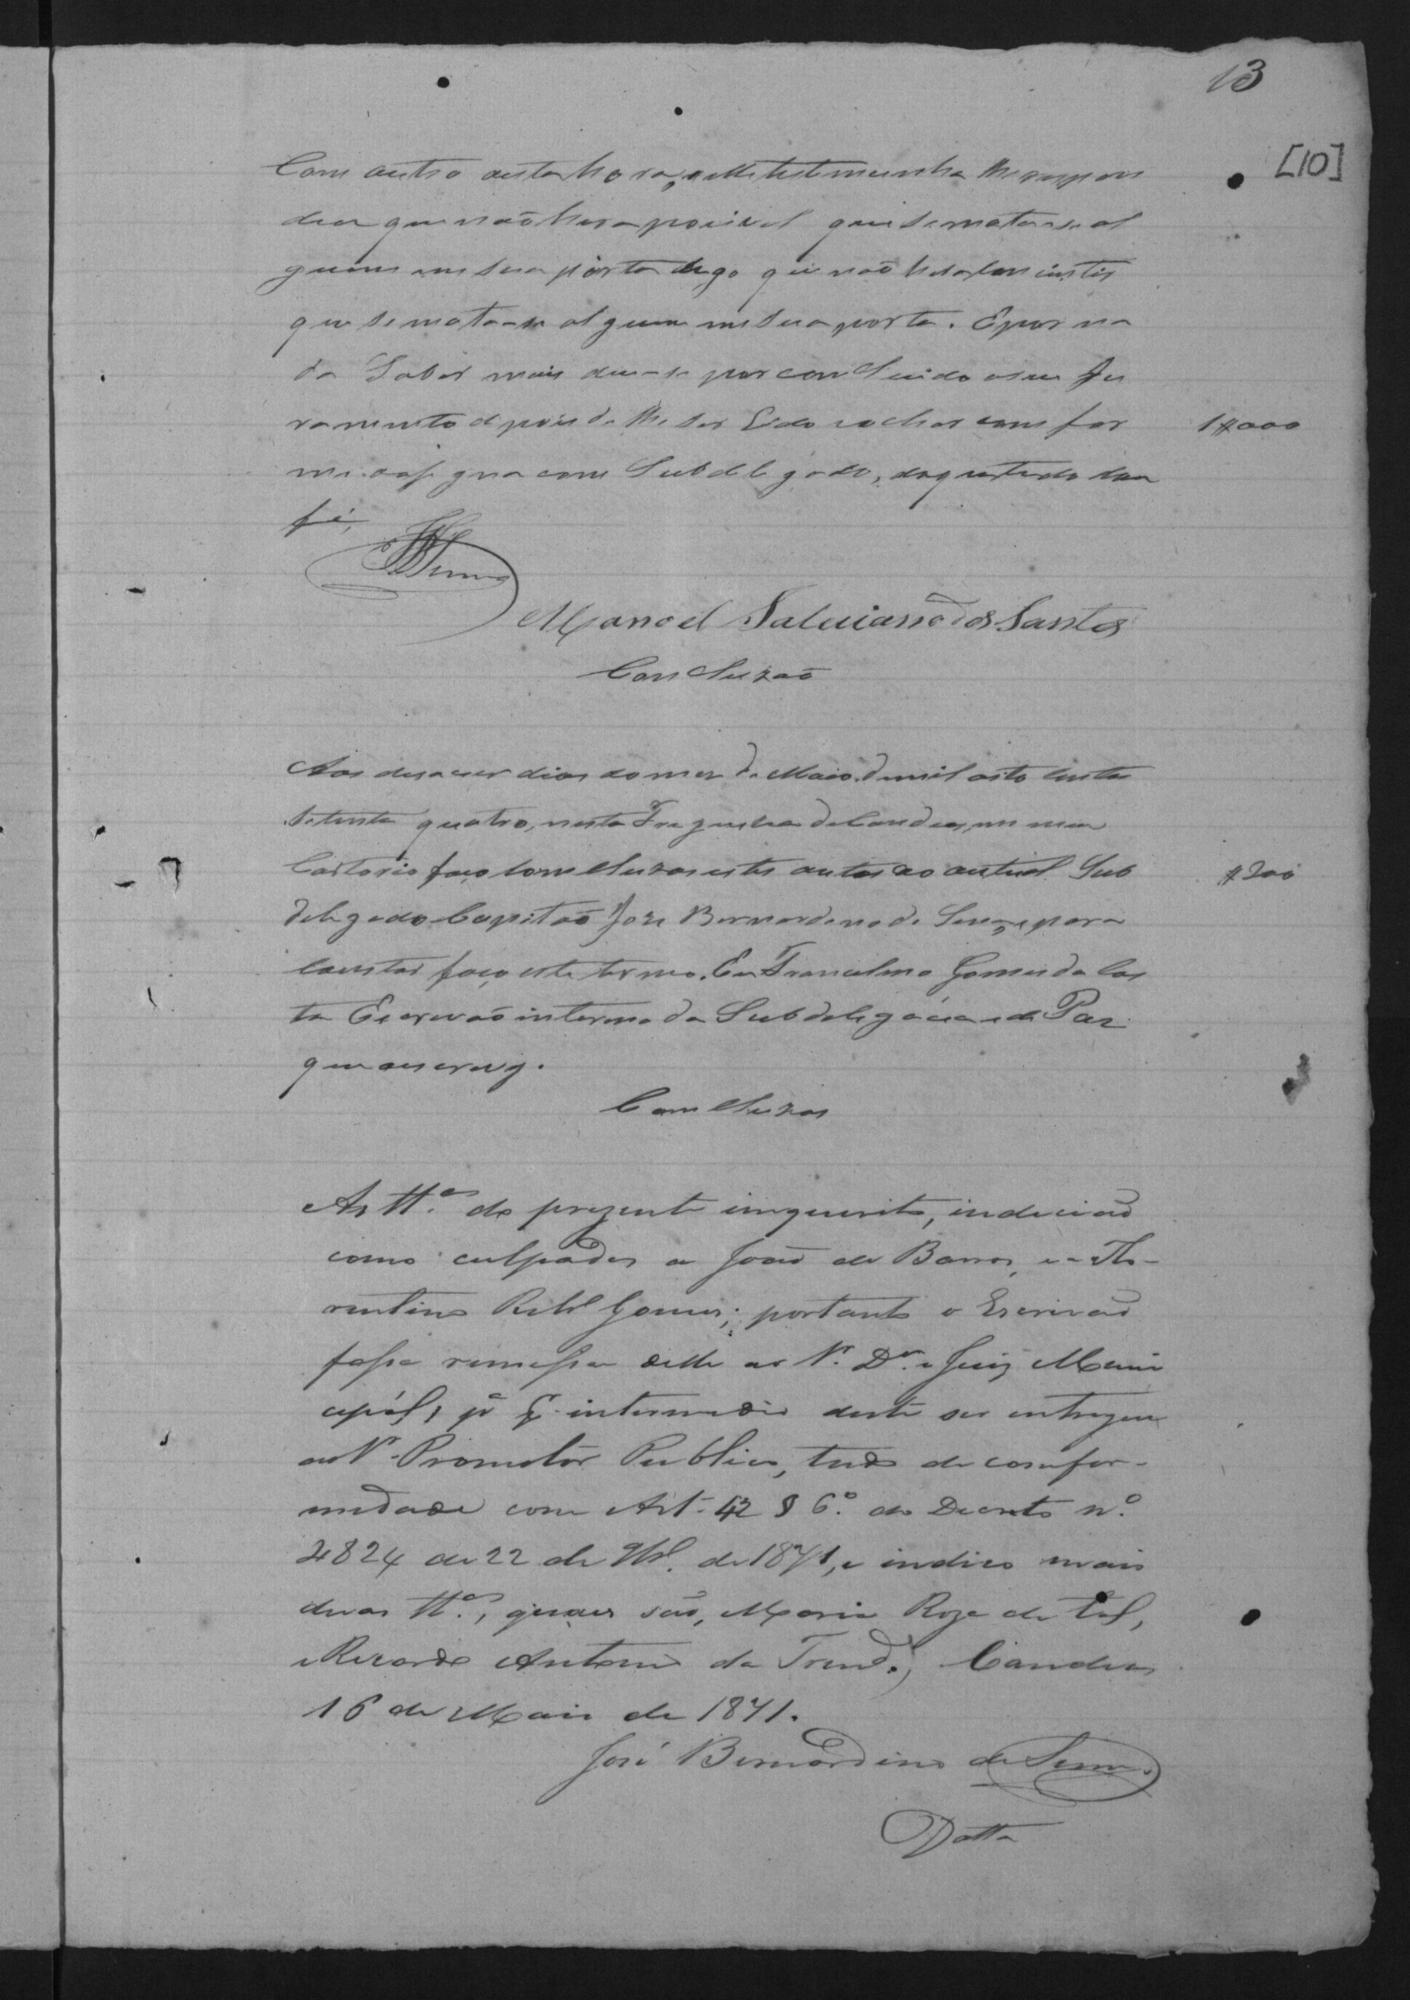 13
[10]
Com outro desta hora, e elle testemunha lhe respon
deu que não hera pocivel que se matase al
guem em sua pórta digo que não
que se matase alguem em sua porta. E por na
da Saber mais deu-se por concluido o seu ju
ramento depois de lhe ser Lido e achar comfor 1$000
me e asigna com Subdelegado, do que tudo dou
fé,
Senna
Manoel Salviano dos Santos
Concluzaõ
Aos desaceis dias do mez de Maio de mil oito centos
setenta quatro, nesta Freguezia de Candeas, em meu
Cartorio faço comcluzos estes autos ao actual Sub $200
delegado Capitaõ Joze Bernardino de Sena, e para
constar faço este termo. Eu Francelino Gomes da Cos
ta Escrivaõ interino da Subdelegacia e de Paz
que escrevy.
Comcluzos
As tt.as do prezente inquerito, indiciaõ
como culpados a João de Barros, e a Flo-
rentino Gomes; portanto o Escrivaõ
faça remessa delle ao Sr. Dr. Juiz Muni
cipál, pª q. intermedio deste ser entregue
ao Sr. Promotôr Publico, tudo de confor-
midade com Art. 42 § 6.º do Decreto n.º
4824 de 22 de 9br.º de 1871, e indico mais
duas tt.as, quaes são, Maria Roza de tal,
e Ricardo Antonio da Trind.e, Candeas
16 de Maio de 1874.
José Bernardino de Senna.
Datta